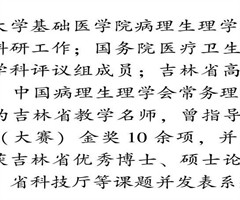 大学基础医学院病理生理学
科研工作；国务院医疗卫生
学科评议组成员；吉林省高
中国病理生理学会常务理
的吉林省教学名师，曾指导
（大赛）金奖 10 余项，并
获吉林省优秀博士、硕士论
省科技厅等课题并发表系